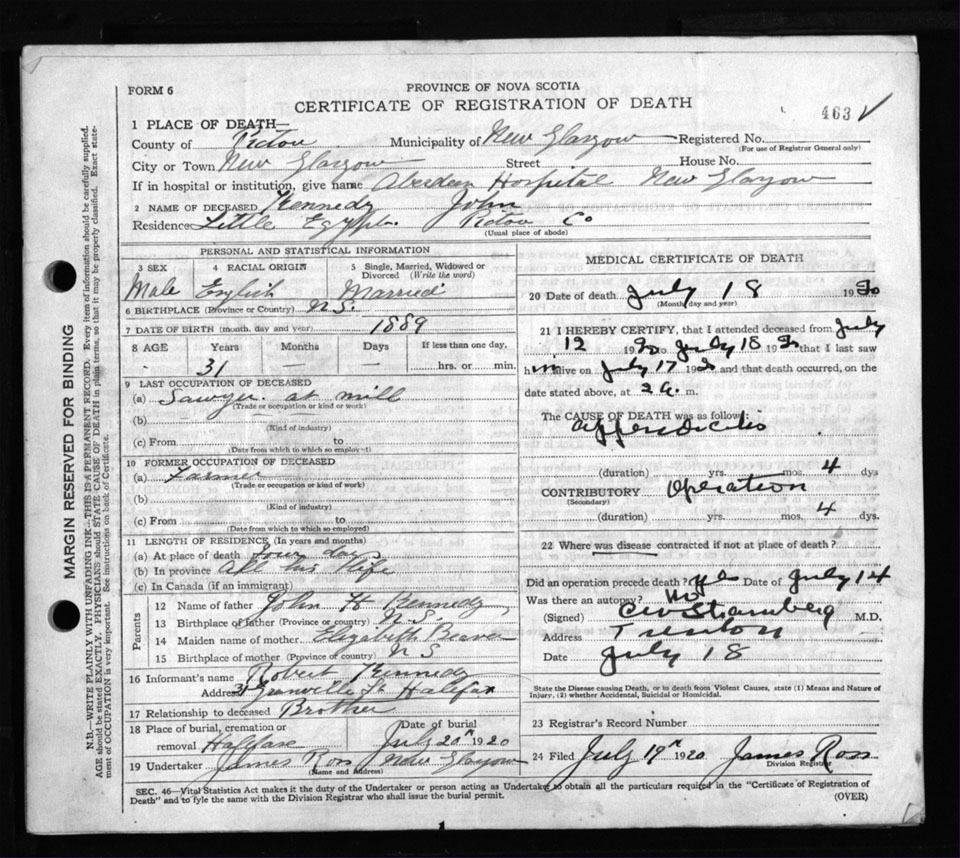 FORM 6
PROVINCE OF NOVA SCOTIA
CERTIFICATE OF REGISTRATION OF DEATH
463 ✓
1 PLACE OF DEATH—
County of Pictou Municipality of New Glasgow Registered No.
(For use of Registrar General only)
City or Town New Glasgow Street House No.
If in hospital or institution, give name Aberdeen Hospital New Glasgow
2 NAME OF DECEASED Kennedy John
Residence Little Egypt Pictou Co
(Usual place of abode)
PERSONAL AND STATISTICAL INFORMATION
3 SEX 4 RACIAL ORIGIN 5 Single, Married, Widowed or Divorced (Write the word)
Male English Married
6 BIRTHPLACE (Province or Country) N.S.
7 DATE OF BIRTH (month, day and year) 1889
8 AGE Years Months Days If less than one day,
31 — — hrs. or min.
9 LAST OCCUPATION OF DECEASED
(a) Sawyer at mill
(Trade or occupation or kind of work)
(b)
(Kind of industry)
(c) From to
(Date from which to which so employed)
10 FORMER OCCUPATION OF DECEASED
(a) Farmer
(Trade or occupation or kind of work)
(b)
(Kind of industry)
(c) From to
(Date from which to which so employed)
11 LENGTH OF RESIDENCE (In years and months)
(a) At place of death four days
(b) In province All his life
(c) In Canada (if an immigrant)
Parents
12 Name of father John H Kennedy
13 Birthplace of father (Province or country) N.S.
14 Maiden name of mother Elizabeth Beaver
15 Birthplace of mother (Province or country) N S
16 Informant's name Robert Kennedy
Address 31 Granville St Halifax
17 Relationship to deceased Brother
18 Place of burial, cremation or removal Halifax
Date of burial July 20th 1920
19 Undertaker James Ross New Glasgow
(Name and Address)
MEDICAL CERTIFICATE OF DEATH
20 Date of death July 18 1920
(Month, day and year)
21 I HEREBY CERTIFY, that I attended deceased from July
12 1920 to July 18 1920 that I last saw
him alive on July 17 1920 and that death occurred, on the
date stated above, at 2 a. m.
The CAUSE OF DEATH was as follows:
appendicitis
(duration) yrs. mos. 4 dys
CONTRIBUTORY Operation
(Secondary)
(duration) yrs. mos. 4 dys.
22 Where was disease contracted if not at place of death?
Did an operation precede death? Yes Date of July 14
Was there an autopsy? No
(Signed) Stramberg M.D.
Address Trenton
Date July 18
State the Disease causing Death, or in death from Violent Causes, state (1) Means and Nature of
Injury, (2) whether Accidental, Suicidal or Homicidal.
23 Registrar's Record Number
24 Filed July 19th 1920 James Ross
Division Registrar
SEC. 46—Vital Statistics Act makes it the duty of the Undertaker or person acting as Undertaker to obtain all the particulars required in the "Certificate of Registration of
Death" and to fyle the same with the Division Registrar who shall issue the burial permit. (OVER)
MARGIN RESERVED FOR BINDING
N.B.—WRITE PLAINLY WITH UNFADING INK—THIS IS A PERMANENT RECORD. Every item of information should be carefully supplied.
AGE should be stated EXACTLY. PHYSICIANS should STATE CAUSE OF DEATH in plain terms, so that it may be properly classified. Exact state-
ment of OCCUPATION is very important. See instructions on back of Certificate.